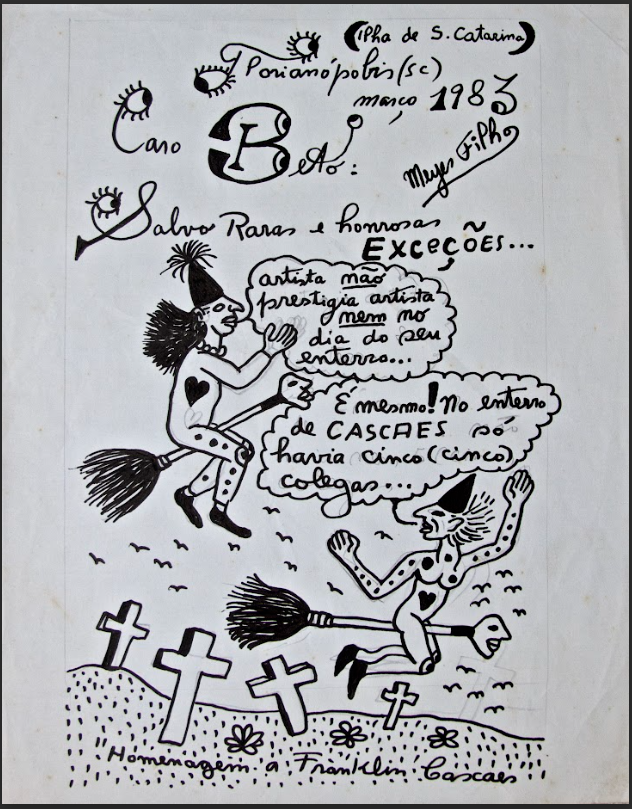 (Ilha de S. Catarina)
Florianópolis (SC)
março 1983
Caro Beto:
Meyer Filho
Salvo Raras e honrosas
EXCEÇÕES...
artista não
prestigia artista
nem no
dia do seu
enterro...
É mesmo! No enterro
de CASCAES só
havia cinco (cinco)
colegas...
"Homenagem a Franklin Cascaes"